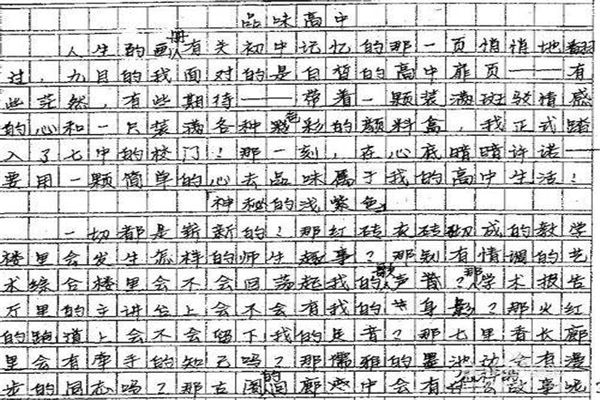 品味高中
人生的画册有关初中记忆的那一页悄悄地翻
过，九月的我面对的是自哲的高中扉页——有
些茫然，有些期待——带着一颗装满斑驳情感
的心和一只装满各种彩色的颜料盒，我正式踏
入了七中的校门！那一刻，在心底暗暗许诺——
要用一颗简单的心去品味属于我的高中生活！
「神秘的浅紫色」
一切都是崭新的！那红砖灰砖砌成的教学
楼里会发生怎样的师生趣事？那别有情调的艺
术综合楼里会不会回荡起我的歌声？那学术报告
厅里的主讲台上会不会有我的身影？那火红
的跑道上会不会留下我的足音？那七里香长廊
里会有牵手的知己吗？那儒雅的墨池边会有漫
步的同志吗？那古阁的回廊中会有什么故事呢？